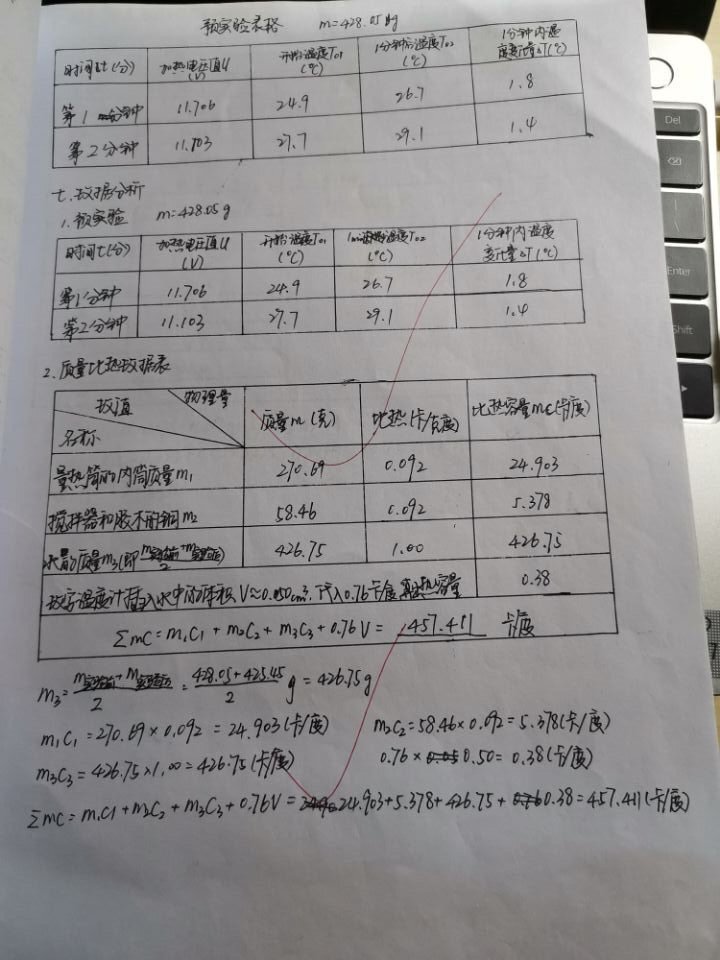 预实验表格 m=428.05g
时间t(分) 加热电压值U(V) 开始温度T01(℃) 1分钟后温度T02(℃) 1分钟内温度变化量ΔT(℃)
第1分钟 11.706 24.9 26.7 1.8
第2分钟 11.103 27.7 29.1 1.4
七.数据分析
1.预实验 m=428.05g
时间t(分) 加热电压值U(V) 开始温度T01(℃) 1min后温度T02(℃) 1分钟内温度变化量ΔT(℃)
第1分钟 11.706 24.9 26.7 1.8
第2分钟 11.103 27.7 29.1 1.4
2.质量比热数据表
数值 物理量 名称 质量m(克) 比热(卡/克度) 比热容量mc(卡/度)
量热筒的内筒质量m1 270.69 0.092 24.903
搅拌器和胶木的铜m2 58.46 0.092 5.378
水的质量m3(即 2) 426.75 1.00 426.75
数字温度计插入水中的体积V≈0.050cm³,代入0.76卡/度 热容量 0.38
ΣmC=m1C1+m2C2+m3C3+0.76V=457.411 卡/度
m3= 2 = 428.05+425.45 2 g=426.75g
m1C1=270.69×0.092=24.903(卡/度) m2C2=58.46×0.092=5.378(卡/度)
m3C3=426.75×1.00=426.75(卡/度) 0.76×0.50=0.38(卡/度)
ΣmC=m1C1+m2C2+m3C3+0.76V=24.903+5.378+426.75+0.38=457.411(卡/度)
Del
Enter
Shift